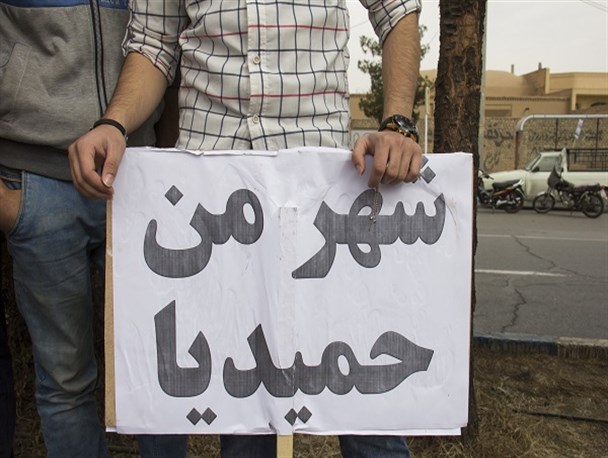 شهر من
حمیدیا